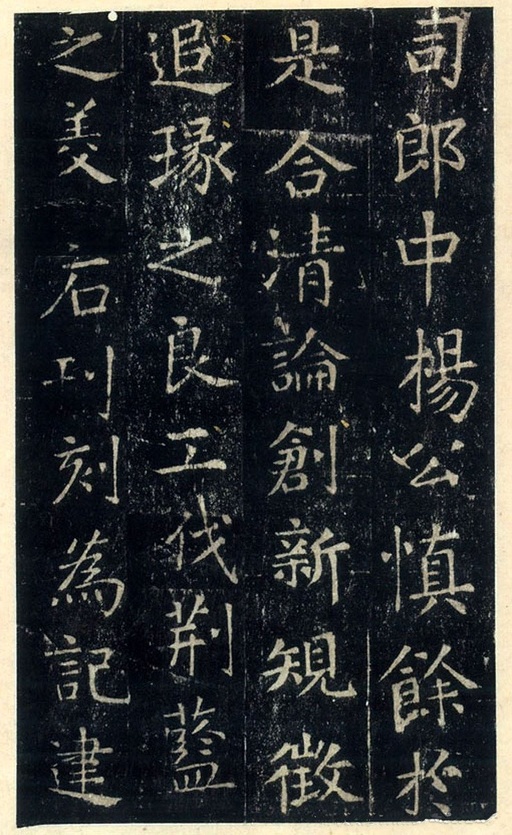 司郎中楊公慎餘於
是合清論創新規徵
追琢之良工伐荊藍
之美石刊刻為記建